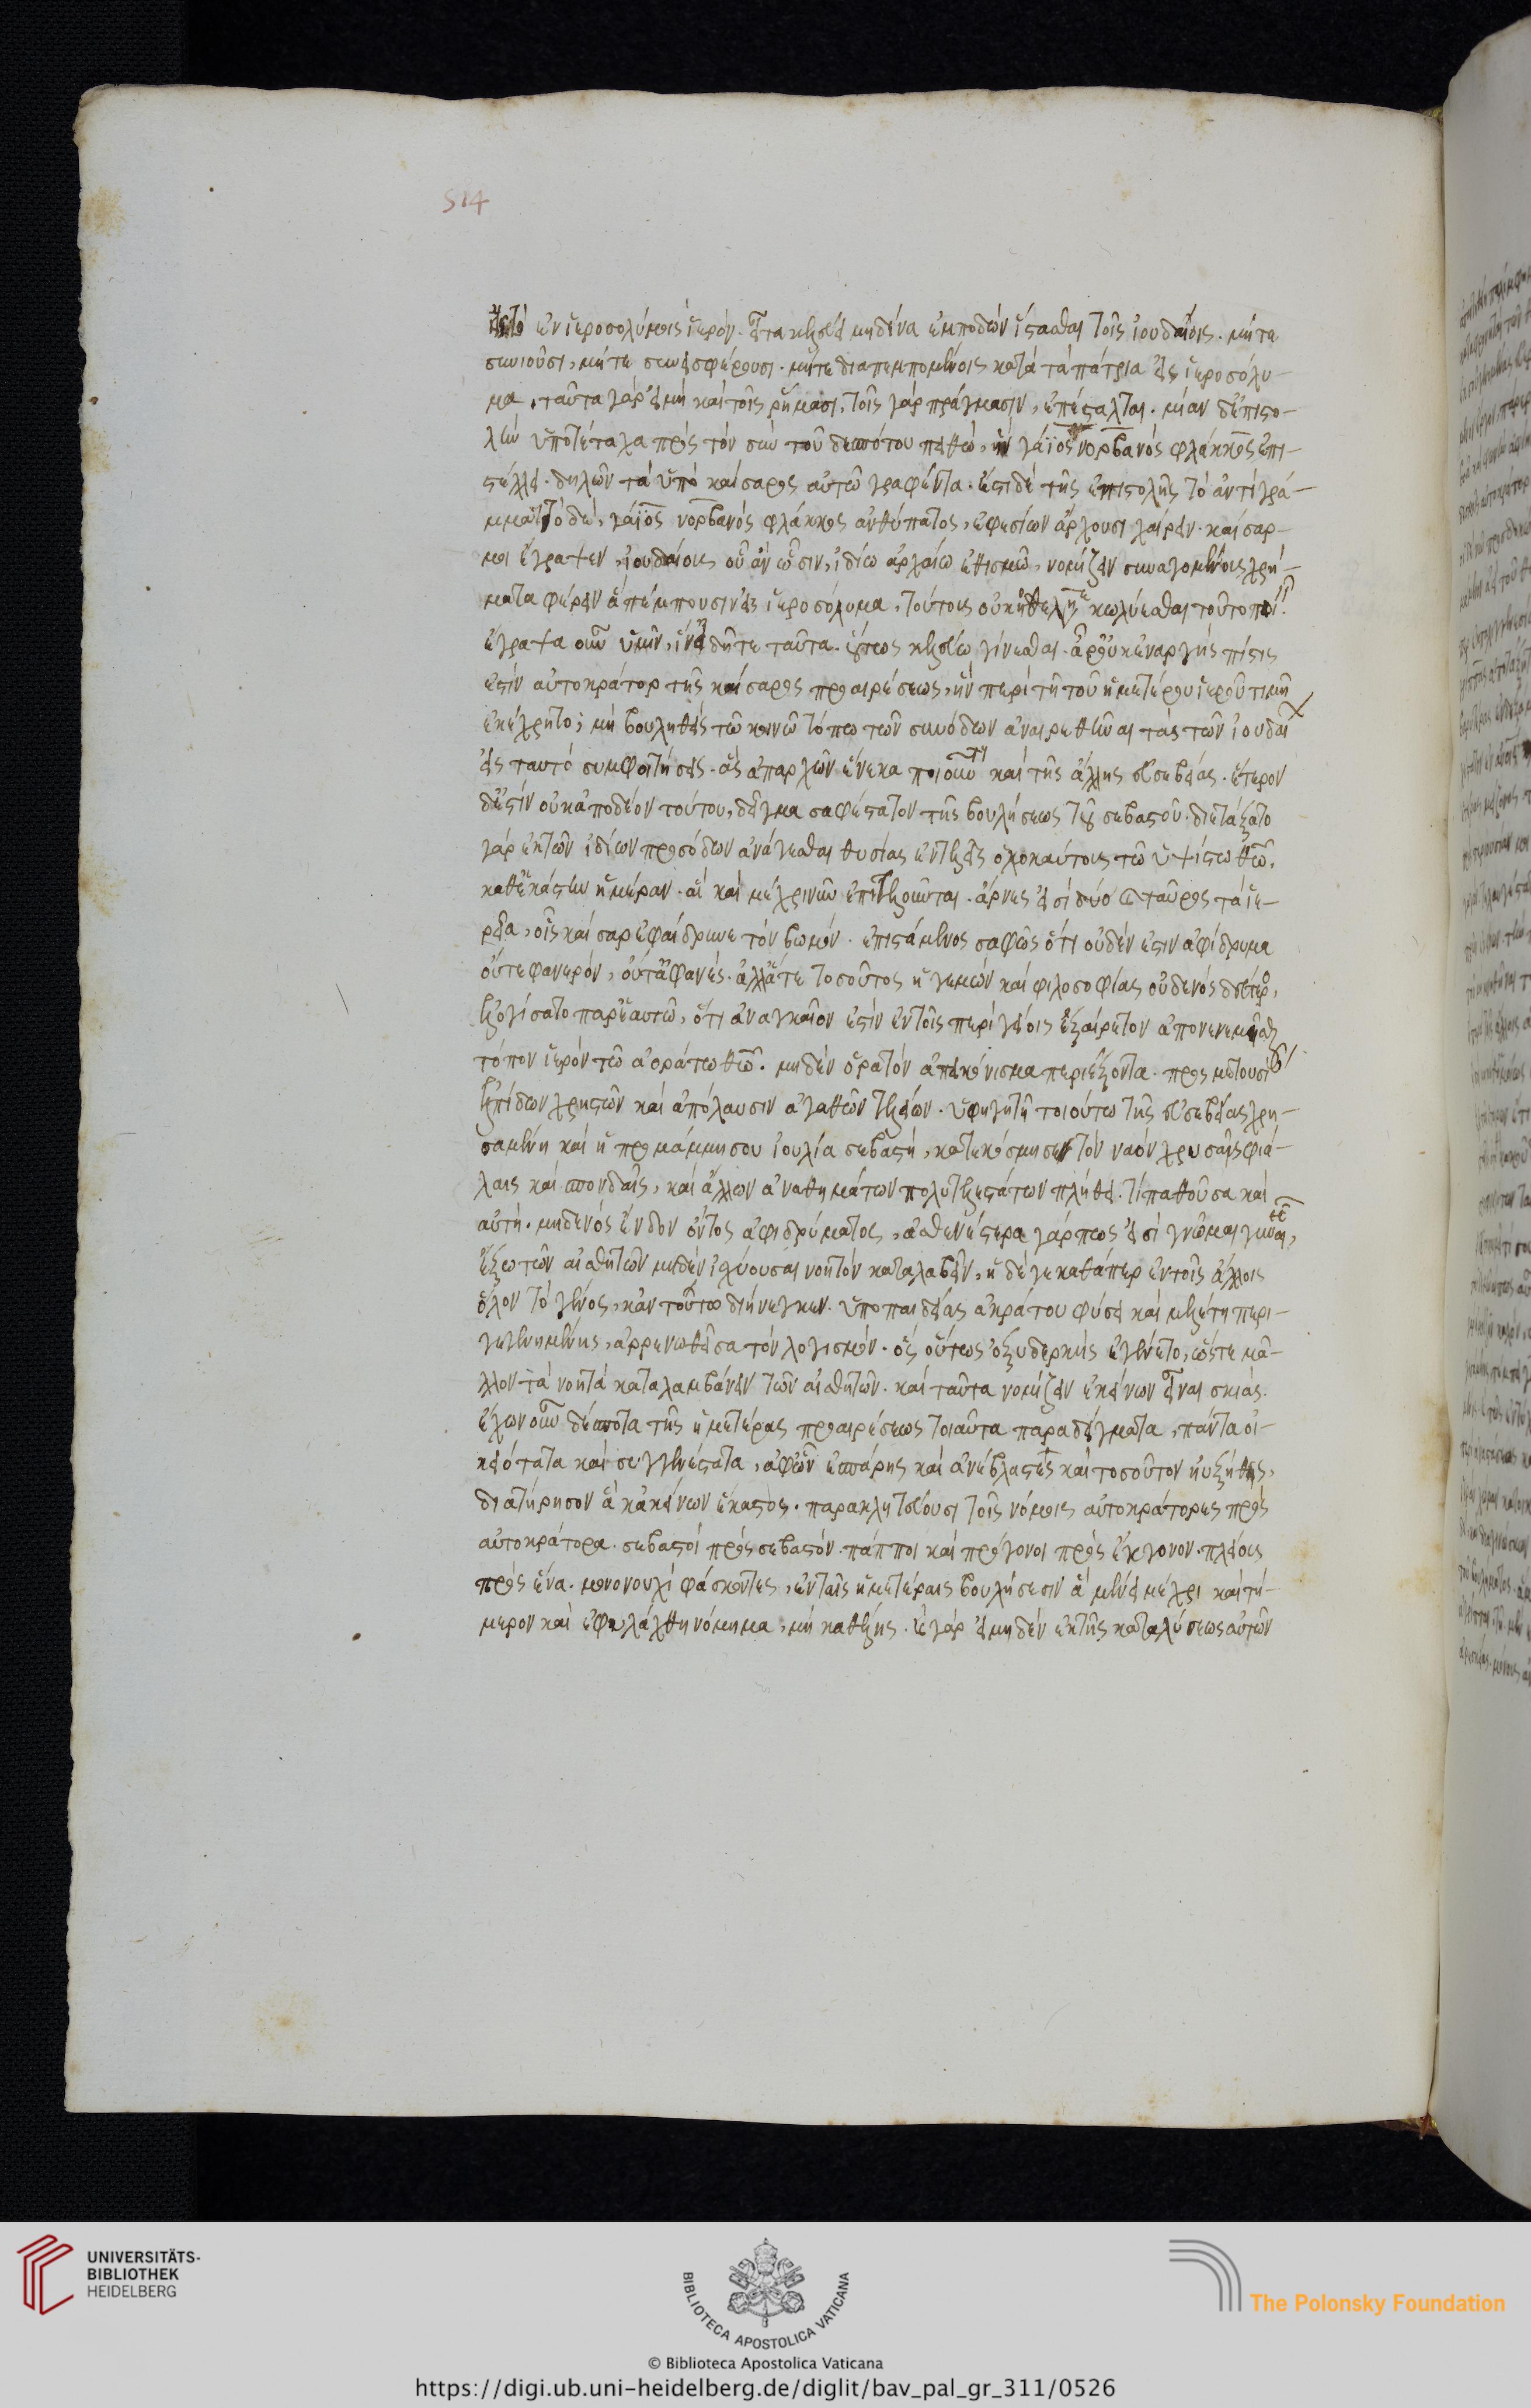 514
εἰς τὸ ἐν ἱεροσολύμοις ἱερόν. εἶτα κελεύει μηδένα ἐμποδὼν ἵστασθαι τοῖς ἰουδαίοις. μήτε
συνιοῦσι, μήτε συνεισφέρουσι. μήτε διαπεμπομένοις κατὰ τὰ πάτρια εἰς ἱεροσόλυ-
μα. ταῦτα γὰρ εἰ μὴ καὶ τοῖς ῥήμασι, τοῖς γὰρ πράγμασιν, ἐπέσταλται. μίαν δ' ἐπιστο-
λὴν ὑποτέταχα πρὸς τὴν σὴν τοῦ δεσπότου πειθώ, ἣν γάϊος νορβανὸς φλάκκος ἐπι-
στέλλει. δηλῶν τὰ ὑπὸ καίσαρος αὐτῶ γραφέντα. ἔστι δὲ τῆς ἐπιστολῆς τὸ ἀντίγρα-
μμα τόδε, γάϊος νορβανὸς φλάκκος ἀνθύπατος, ἐφεσίων ἄρχουσι χαίρειν. καῖσαρ-
μοι ἔγραψεν, ἰουδαίους, οὗ ἂν ὦσιν, ἰδίω ἀρχαίω ἐθισμῶ, νομίζειν συναγομένους χρή-
ματα φέρειν ἃ πέμπουσιν εἰς ἱεροσόλυμα, τούτους οὐκ ἠθέλησε κωλύεσθαι τοῦτο ποι
ἔγραψα οὖν ὑμῖν, ἵν' εἰδῆτε ταῦτα. οὕτως κελεύω γίνεσθαι. ἆρ' οὐκ ἐναργὴς πίστις
ἐστὶν αὐτοκράτορ τῆς καίσαρος προαιρέσεως, ἣν περὶ τῆ τοῦ ἡμετέρου ἱεροῦ τιμῆ
ἐκέχρητο; μὴ βουληθεὶς τῶ κοινῶ τόπω τῶν συνόδων ἀναιρεθῆναι τὰς τῶν ἰουδαί
εἰς ταυτὸ συμφοιτήσεις. ἃς ἀπαρχῶν ἕνεκα ποιοῦν καὶ τῆς ἄλλης εὐσεβείας. ἕτερον
δ' ἐστὶν οὐκ ἀποδέον τούτου, δεῖγμα σαφέστατον τῆς βουλήσεως τοῦ σεβαστοῦ. διετάξατο
γὰρ ἐκ τῶν ἰδίων προσόδων ἀνάγεσθαι θυσίας ἐντελεῖς ὁλοκαύτους τῶ ὑψίστω θεῶ.
καθ' ἑκάστην ἡμέραν. αἳ καὶ μέχρι νῦν ἐπιτελοῦνται. ἄρνες εἰσὶ δύο ταῦρος τὰ ἱε-
ρεῖα, οἷς καῖσαρ ἐφαίδρυνε τὸν βωμόν. ἐπιστάμενος σαφῶς ὅτι οὐδέν ἐστιν ἀφίδρυμα
οὔτε φανερόν, οὔτ' ἀφανές. ἀλλ' ἅτε τοσοῦτος ἡγεμὼν καὶ φιλοσοφίας οὐδενὸς δεύτερ,
ἐλογίσατο παρ' ἑαυτῶ, ὅτι ἀναγκαῖόν ἐστιν ἐν τοῖς περιγείοις ἐξαίρετον ἀπονενεμῆσθαι
τόπον ἱερὸν τῶ ἀοράτω θεῶ. μηδὲν ὁρατὸν ἀπεικόνισμα περιέξοντα. πρὸς μετουσί
ἐλπίδων χρηστῶν καὶ ἀπόλαυσιν ἀγαθῶν τελείων. ὑφηγητῆ τοιούτω τῆς εὐσεβείας χρη-
σαμένη καὶ ἡ προμάμμη σου ἰουλία σεβαστή, κατεκόσμησε τὸν ναὸν χρυσαῖς φιά-
λαις καὶ σπονδαῖς, καὶ ἄλλων ἀναθημάτων πολυτελεστάτων πλήθει. τί παθοῦσα καὶ
αὐτή. μηδενὸς ἔνδον ὄντος ἀφιδρύματος, ἀσθενέστεραι γάρ πως εἰσὶ γνῶμαι γυναι,
ἔξω τῶν αἰσθητῶν μηδὲν ἰσχύουσαι νοητὸν καταλαβεῖν, ἡ δέ γε καθάπερ ἐν τοῖς ἄλλοις
ὅλον τὸ γένος, κἀν τούτω διήνεγκεν. ὑπὸ παιδείας ἀκράτου φύσει καὶ μελέτη περι-
γεγενημένης, ἀρρενωθεῖσα τὸν λογισμόν. ὃς οὕτως ὀξυδερκὴς ἐγένετο, ὥστε μᾶ-
λλον τὰ νοητὰ καταλαμβάνειν τῶν αἰσθητῶν. καὶ ταῦτα νομίζειν ἐκείνων εἶναι σκιάς.
ἔχων οὖν δέσποτα τῆς ἡμετέρας προαιρέσεως τοιαῦτα παραδείγματα, πάντα οἰ-
κειότατα καὶ συγγενέστατα, ἀφ' ὧν ἐσπάρης καὶ ἀνέβλαστες καὶ τοσοῦτον ηὐξήθης,
διατήρησον ἃ κἀκείνων ἕκαστος. παρακλητεύουσι τοῖς νόμοις αὐτοκράτορες πρὸς
αὐτοκράτορα. σεβαστοὶ πρὸς σεβαστόν. πάπποι καὶ πρόγονοι πρὸς ἔκγονον. πλείους
πρὸς ἕνα. μονονουχὶ φάσκοντες, ἐν ταῖς ἡμετέραις βουλήσεσιν ἃ μένει μέχρι καὶ τή-
μερον καὶ ἐφυλάχθη νόμιμα, μὴ καθέλης. εἰ γὰρ εἰ μηδὲν ἐκ τῆς καταλύσεως αὐτῶν
UNIVERSITÄTS-
BIBLIOTHEK
HEIDELBERG
BIBLIOTECA APOSTOLICA VATICANA
The Polonsky Foundation
© Biblioteca Apostolica Vaticana
https://digi.ub.uni-heidelberg.de/diglit/bav_pal_gr_311/0526